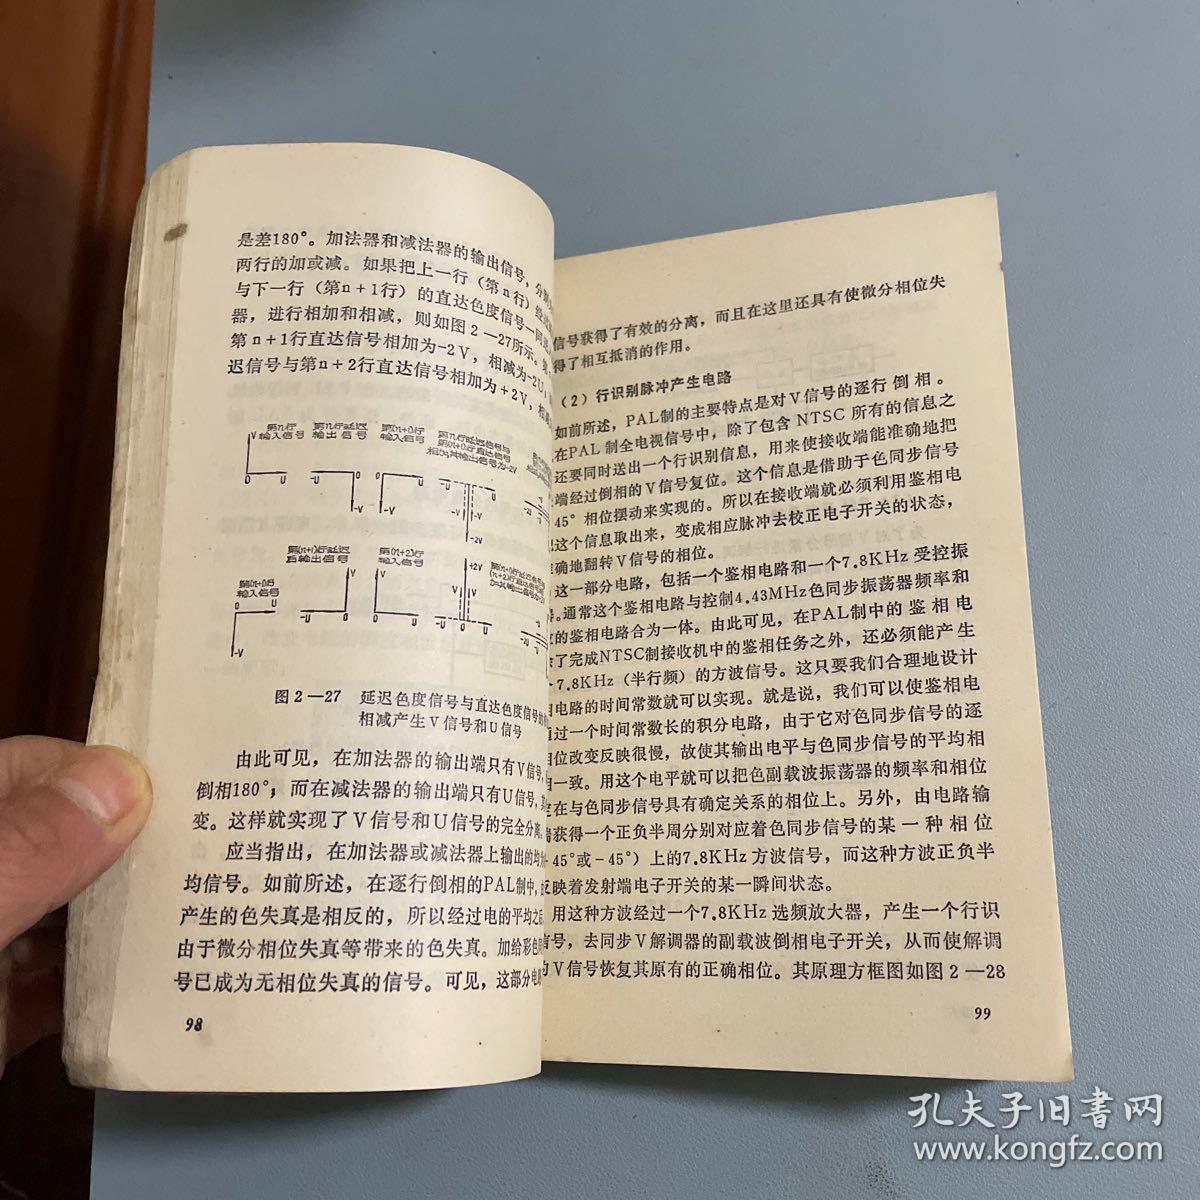 是差180°。加法器和减法器的输出信号，分别
两行的加或减。如果把上一行（第n行）经
与下一行（第n+1行）的直达色度信号一同
器，进行相加和相减，则如图2—27所示。
第n+1行直达信号相加为-2V，相减为-2U，
迟信号与第n+2行直达信号相加为+2V，相
第n行
输入信号
第n行延迟
输出信号
第(n+1)行
输入信号
第n行延迟信号与
第(n+1)行直达信号
相加其输出信号为-2V
V
U
-U
-V
-2V
第(n+1)行
输入信号
第(n+1)行延迟
后输出信号
第(n+2)行
输入信号
+2V
图2—27 延迟色度信号与直达色度信号
相减产生V信号和U信号
由此可见，在加法器的输出端只有V信号，
倒相180°；而在减法器的输出端只有U信号，
变。这样就实现了V信号和U信号的完全分离。
应当指出，在加法器或减法器上输出的均
均信号。如前所述，在逐行倒相的PAL制中，
产生的色失真是相反的，所以经过电的平均之后，
由于微分相位失真等带来的色失真。加给彩色
号已成为无相位失真的信号。可见，这部分电
98
信号获得了有效的分离，而且在这里还具有使微分相位失
得了相互抵消的作用。
（2）行识别脉冲产生电路
如前所述，PAL制的主要特点是对V信号的逐行倒相。
在PAL制全电视信号中，除了包含NTSC所有的信息之
还要同时送出一个行识别信息，用来使接收端能准确地把
端经过倒相的V信号复位。这个信息是借助于色同步信号
45°相位摆动来实现的。所以在接收端就必须利用鉴相电
这个信息取出来，变成相应脉冲去校正电子开关的状态，
确地翻转V信号的相位。
这一部分电路，包括一个鉴相电路和一个7.8KHz受控振
。通常这个鉴相电路与控制4.43MHz色同步振荡器频率和
的鉴相电路合为一体。由此可见，在PAL制中的鉴相电
了完成NTSC制接收机中的鉴相任务之外，还必须能产生
7.8KHz（半行频）的方波信号。这只要我们合理地设计
电路的时间常数就可以实现。就是说，我们可以使鉴相电
过一个时间常数长的积分电路，由于它对色同步信号的逐
相位改变反映很慢，故使其输出电平与色同步信号的平均相
一致。用这个电平就可以把色副载波振荡器的频率和相位
在与色同步信号具有确定关系的相位上。另外，由电路输
获得一个正负半周分别对应着色同步信号的某一种相位
45°或-45°）上的7.8KHz方波信号，而这种方波正负半
反映着发射端电子开关的某一瞬间状态。
用这种方波经过一个7.8KHz选频放大器，产生一个行识
信号，去同步V解调器的副载波倒相电子开关，从而使解调
V信号恢复其原有的正确相位。其原理方框图如图2—28
99
孔夫子旧书网
www.kongfz.com